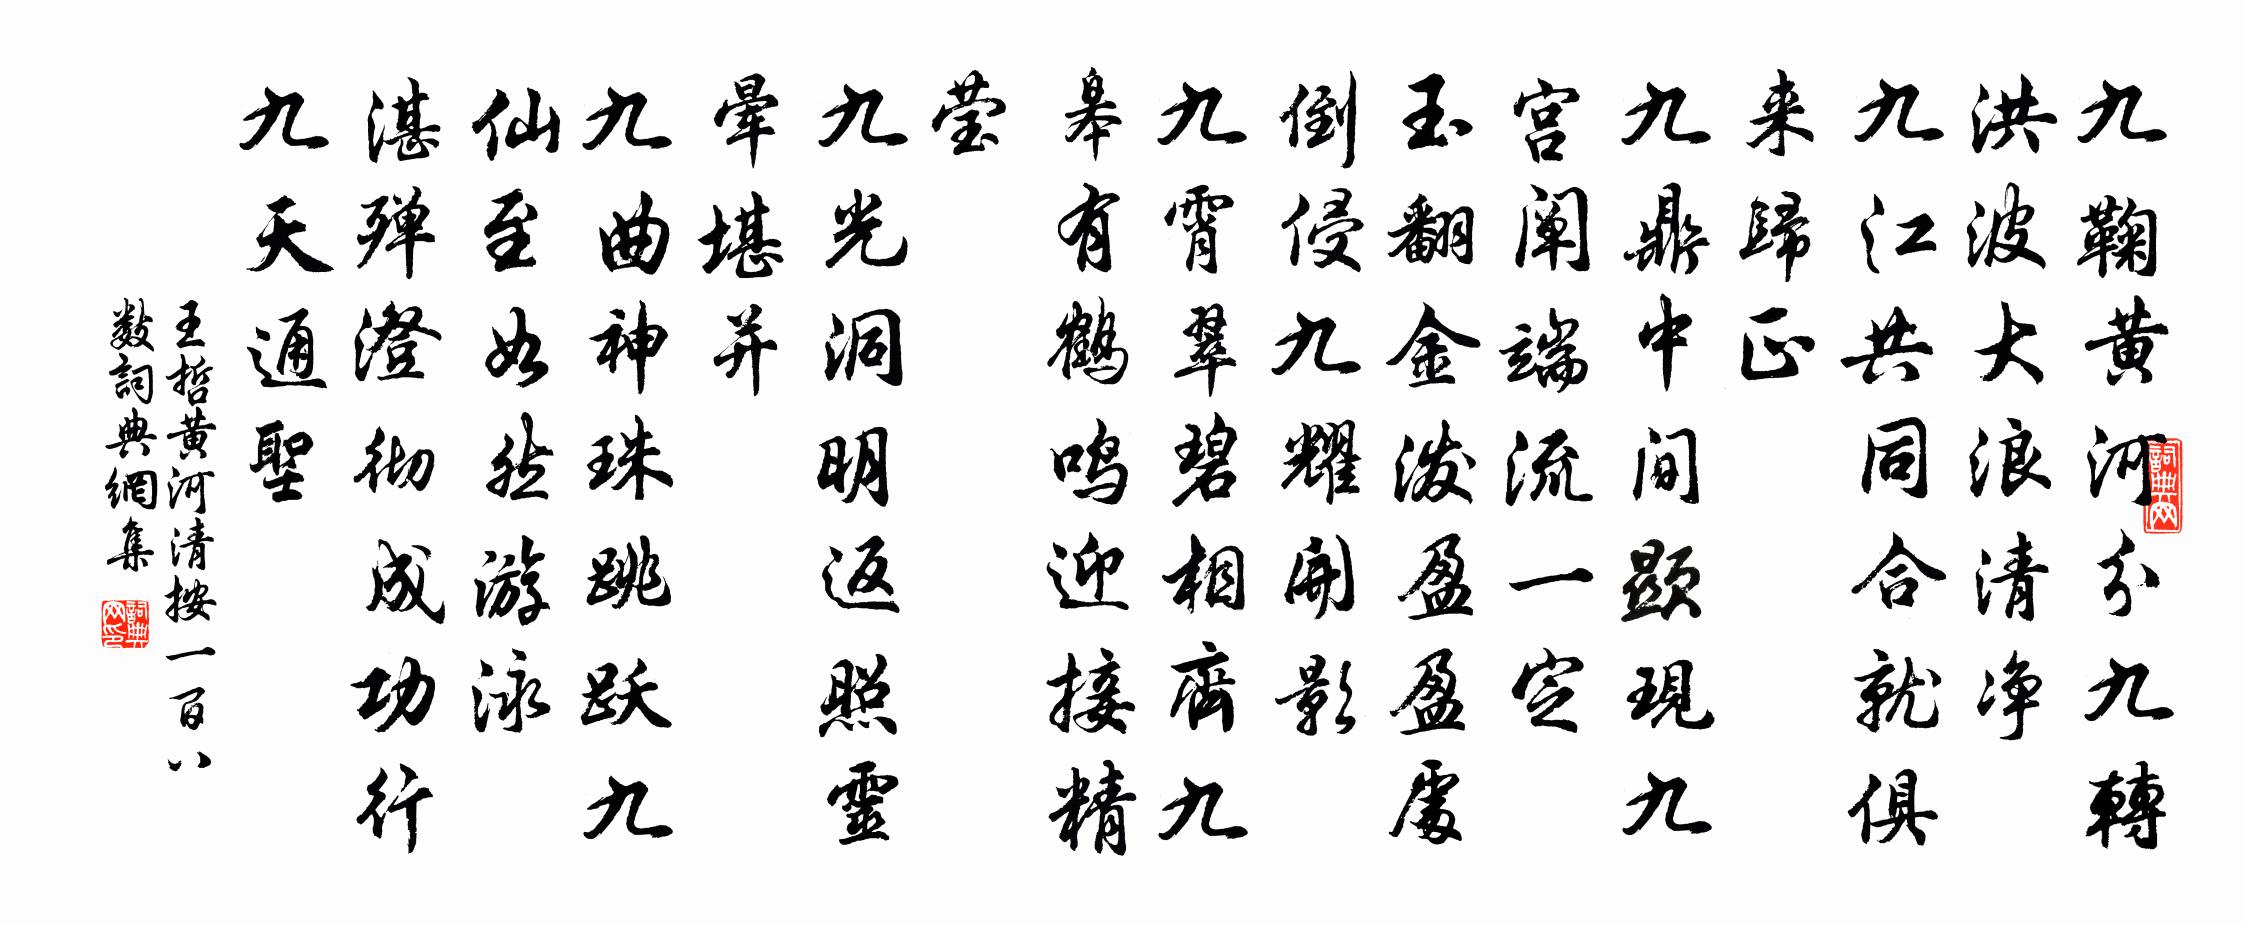 九鞠黄河分九轉
洪波大浪清净
九江共同合就俱
来歸正
九鼎中间顯現九
宫闡端流一定
玉翻金泼盈盈處
倒侵九耀開影
九霄翠碧相齊九
皋有鶴鸣迎接精
莹
九光洞明返照靈
暈堪并
九曲神珠跳跃九
仙至如然游泳
湛殫澄彻成功行
九天通聖
王哲黄河清按一百八
数詞典網集
詞典网
詞典网印